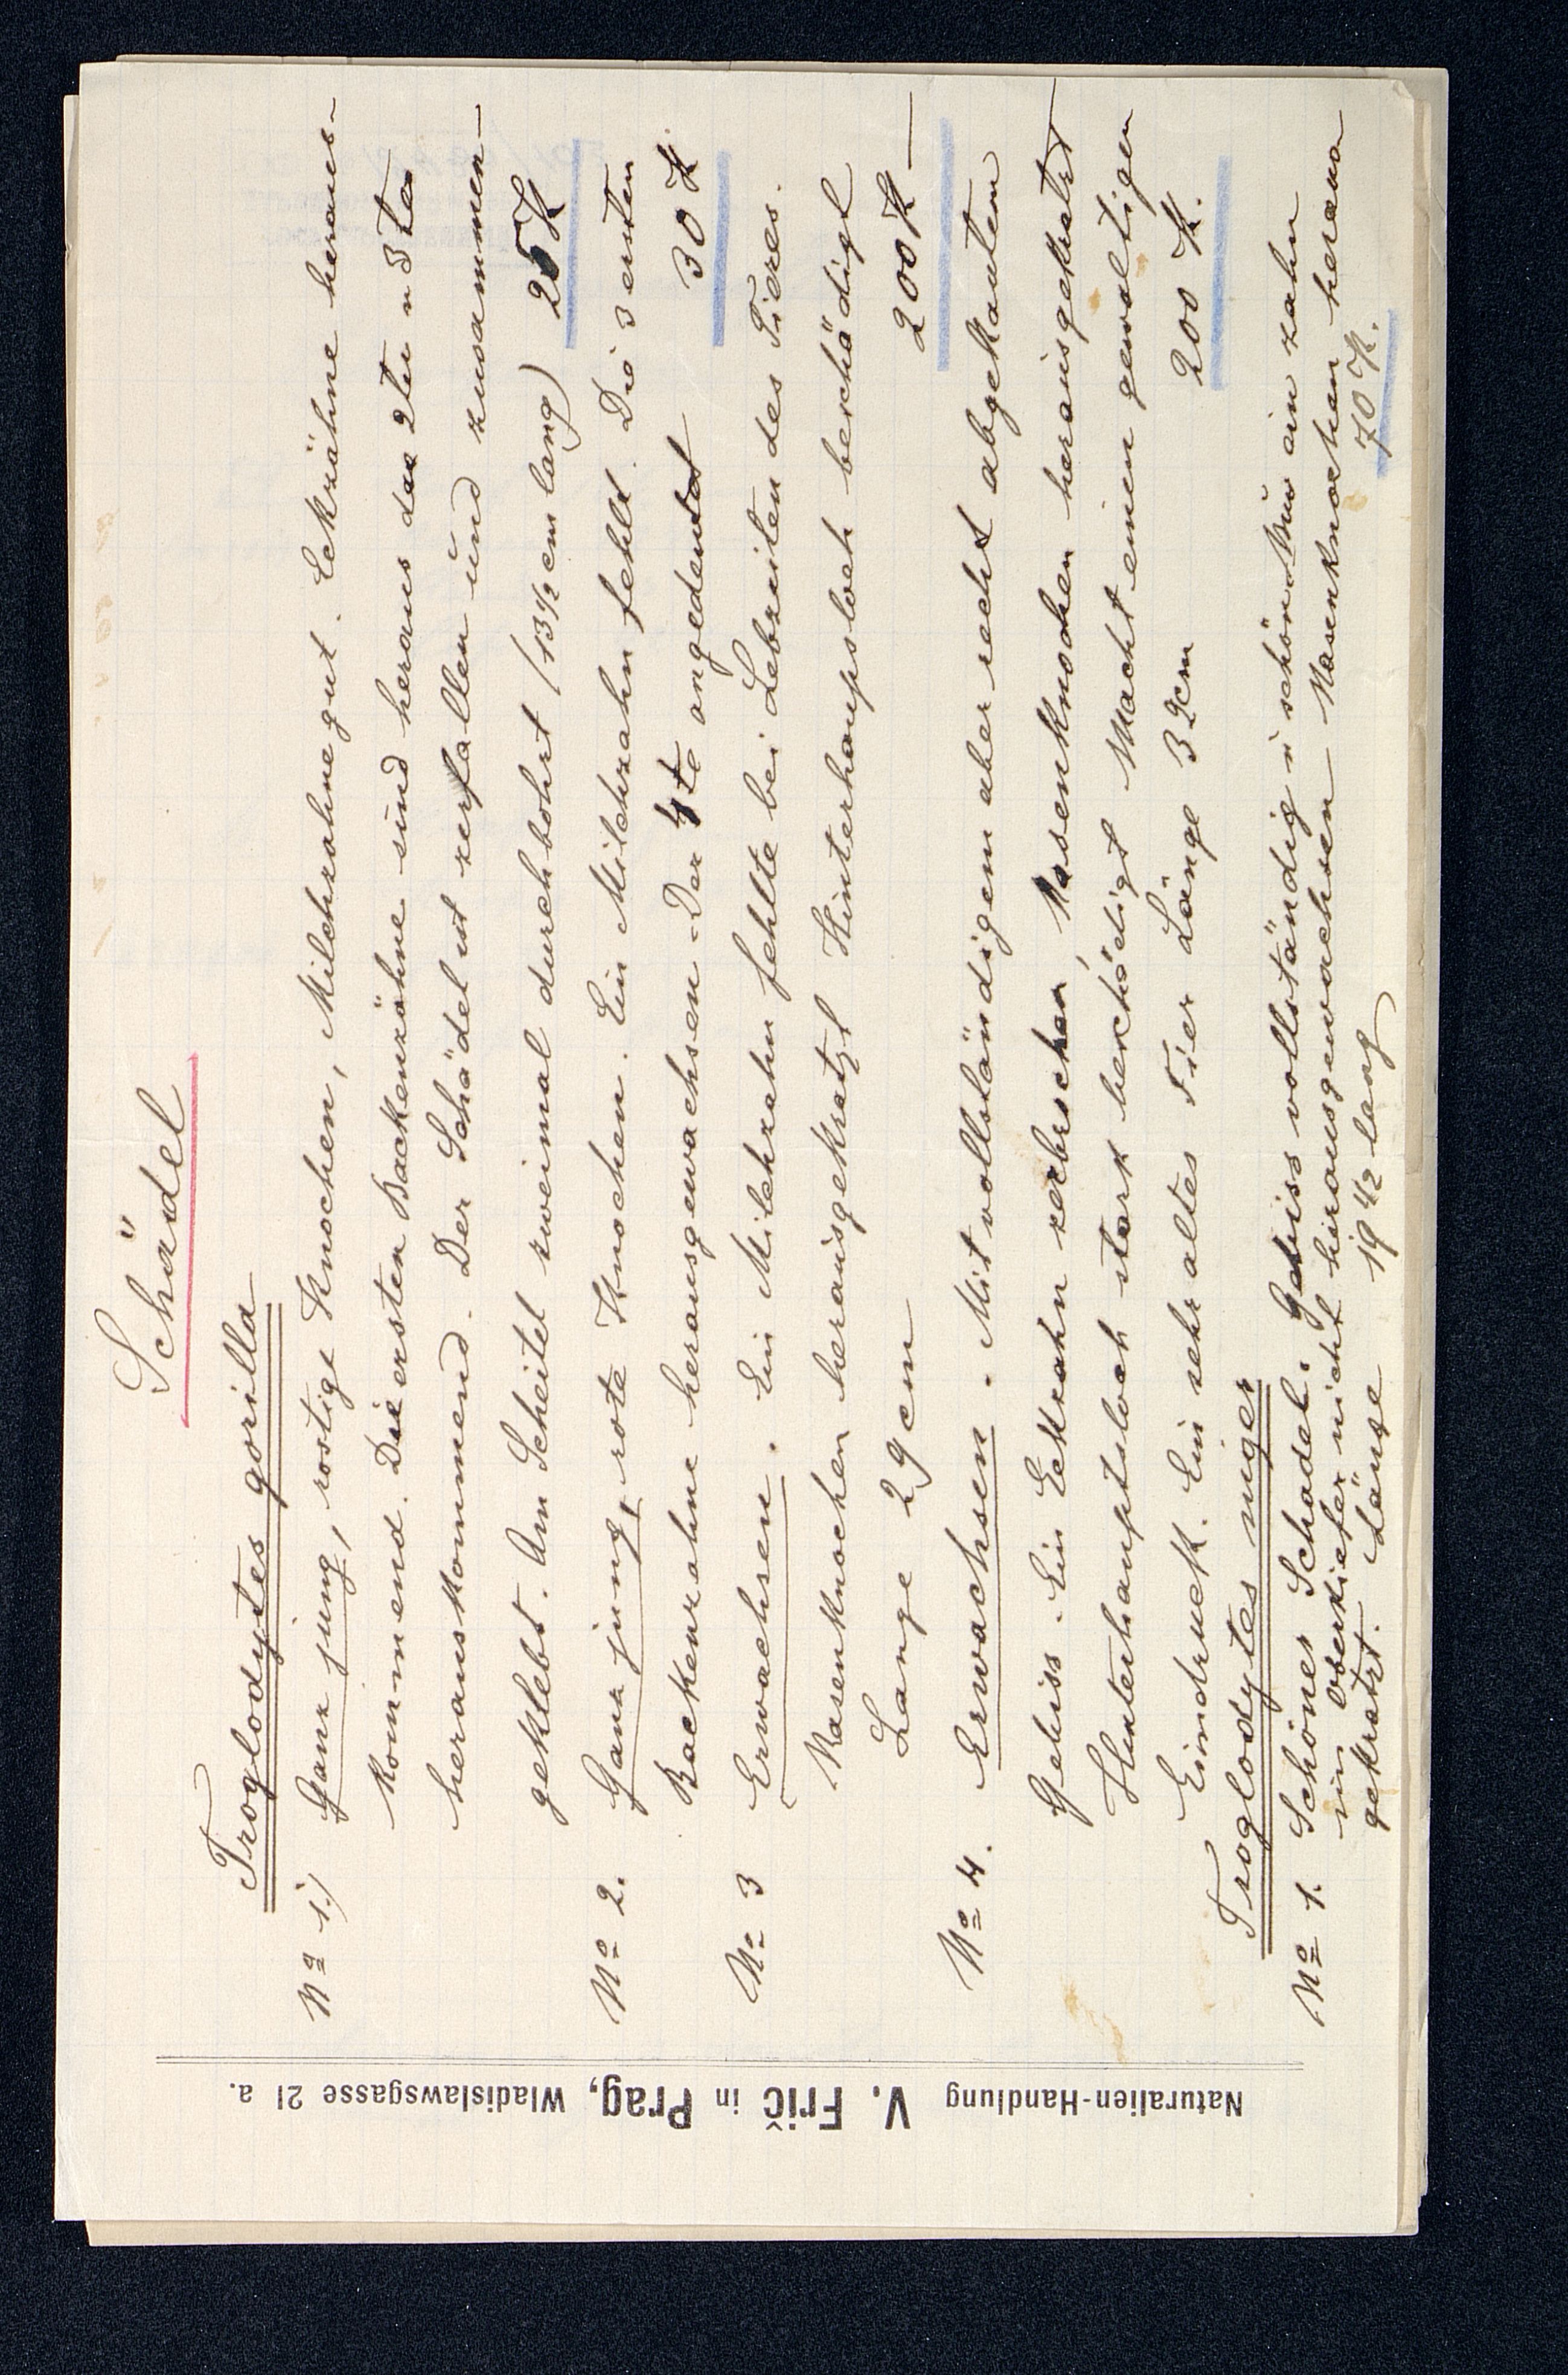 Naturalien-Handlung V. Frič in Prag, Wladislawsgasse 21 a.
Schädel
Troglodytes gorilla
No 1.) Ganz jung, rostige Knochen, Milchzahne gut. Eckzähne heraus-
kommend. Die ersten Backenzähne sind heraus das 2te u 3te
herauskommend. Der Schädel ist zerfallen und zusammen-
geklebt. Am Scheitel zweimal durchbohrt (13 1/2 cm lang) 25 K
No 2. Ganz jung, rote Knochen. Ein Milchzahn fehlt. Die 3 ersten
Backenzahne herausgewachsen. Der 4te angedeutet 30 K
No 3 Erwachsen. Ein Milchzahn fehlte bei Lebzeiten des Tieres.
Nasenknochen herausgekratzt Hinterhaupsloch beschädigt
Lange 29 cm 200 K —
No 4. Erwachsen. Mit vollständigem aber recht abgekauten
Gebiss. Ein Eckzahn zerbrochen, Nasenknochen herausgekratzt
Hinterhauptsloch stark beschädigt Macht einen gewaltigen
Eindruck. Ein sehr altes Tier Länge 32 cm 200 K.
Troglodytes niger
No 1. Schöner Schadel. Gebiss vollständig u schön. Nur ein zahn
im Oberkiefer nicht herausgewachsen Nasenknochen heraus
gekratzt. Länge 19 1/2 lang 70 K.